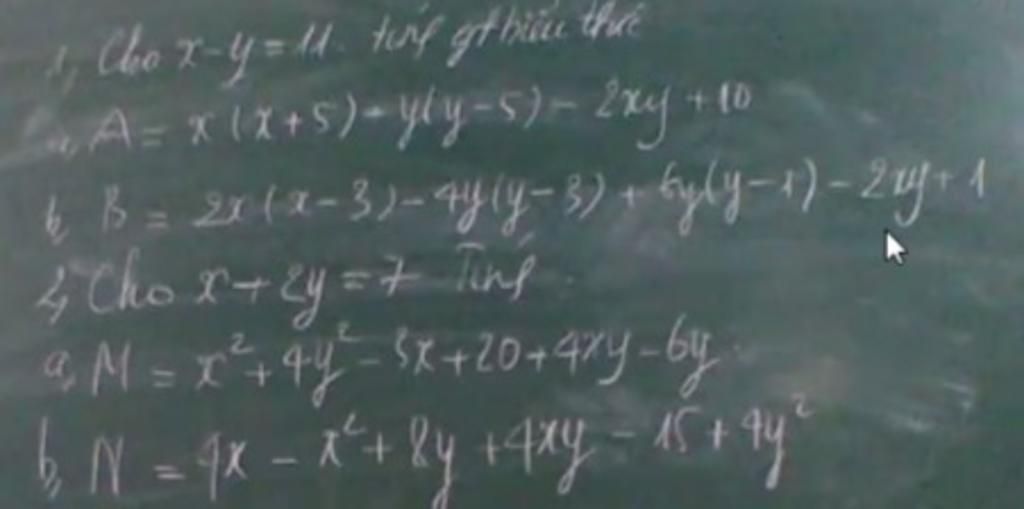 1, Cho x-y = 11. tính gt biểu thức
a, A = x(x+5) + y(y-5) - 2xy + 10
b, B = 2x(x-3) - 4y(y-3) + 6y(y-1) - 2xy + 1
2, Cho x+2y = 7 Tính
a, M = x² + 4y² - 3x + 20 + 4xy - 6y
b, N = 4x - x² + 8y + 4xy - 15 + 4y²